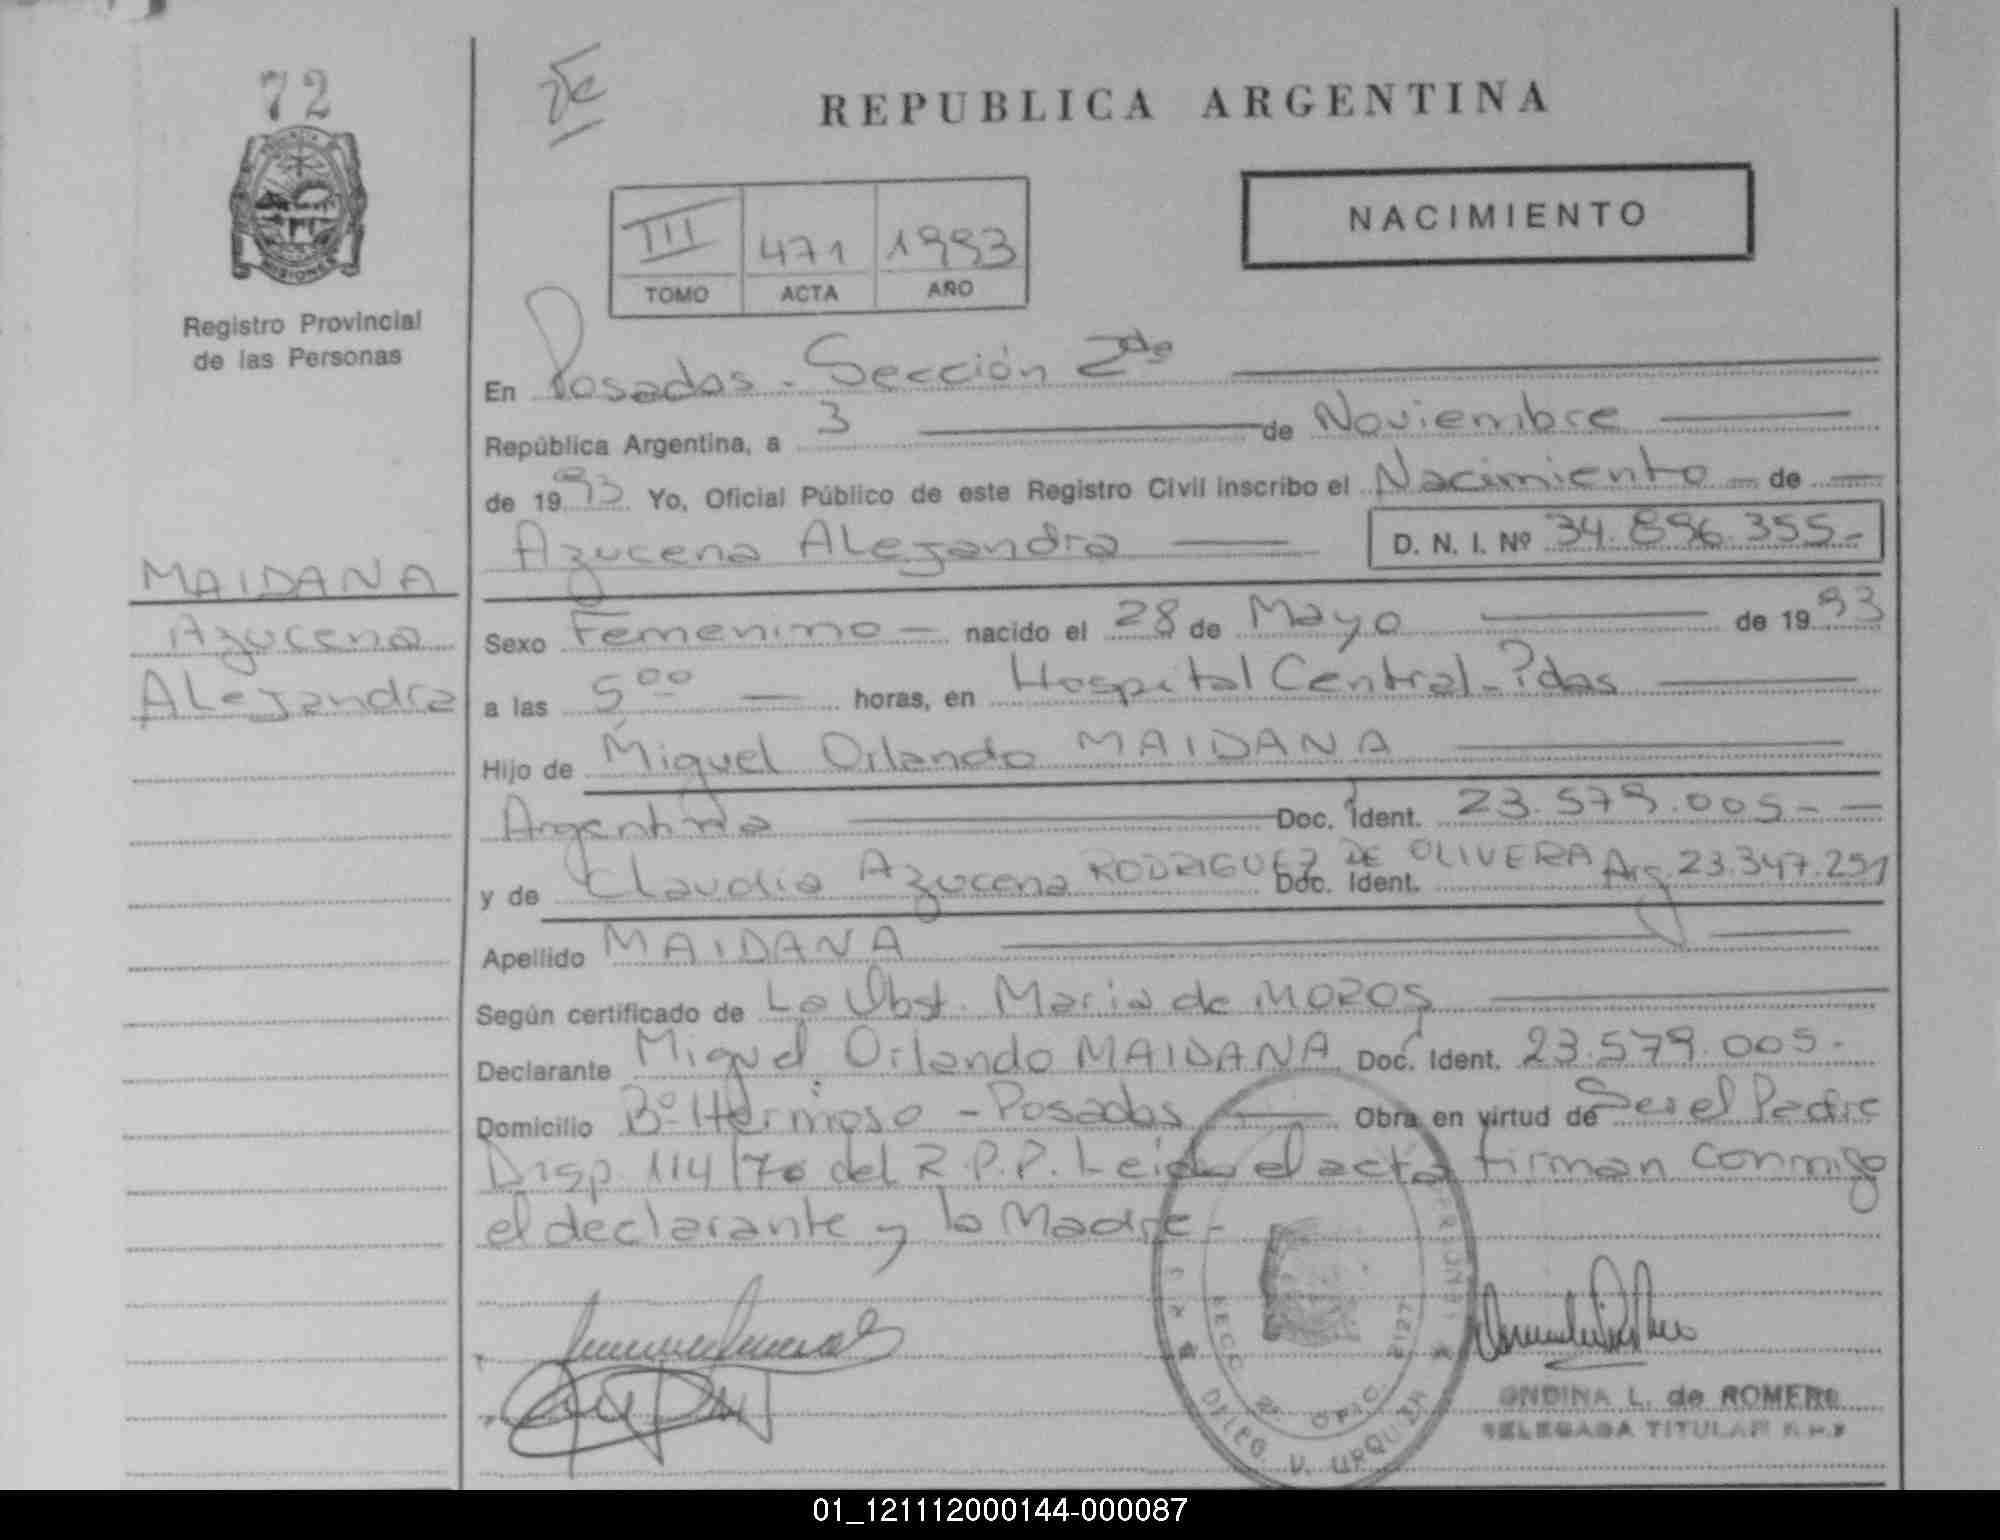 72
REPUBLICA ARGENTINA
NACIMIENTO
III 471 1993
TOMO ACTA AÑO
MISIONES
Registro Provincial
de las Personas
En Posadas - Sección 2da
República Argentina, a 3 de Noviembre
de 1993 Yo, Oficial Público de este Registro Civil inscribo el Nacimiento de
Azucena ALejandra D. N. I. Nº 34.896.355.-
MAIDANA
Azucena
ALejandra
Sexo Femenino nacido el 28 de Mayo de 1993
a las 5 00 horas, en Hospital Central - Pdas
Hijo de Miguel Orlando MAIDANA
Argentina Doc. Ident. 23.579.005.-
y de Claudia Azucena RODRIGUEZ DE OLIVERA Doc. Ident. Arg. 23.347.251
Apellido MAIDANA
Según certificado de La Obst. Maria de MOROS
Declarante Miguel Orlando MAIDANA Doc. Ident. 23.579.005.-
Domicilio Bº Hermoso - Posadas Obra en virtud de Ser el Padre
Disp. 114/70 del R.P.P. Leida el acta firman conmigo
el declarante y la Madre -
SECC 2ª OPIC 2127
DELEG. V. URQUIZA
ONDINA L. de ROMERO
DELEGADA TITULAR
01_121112000144-000087